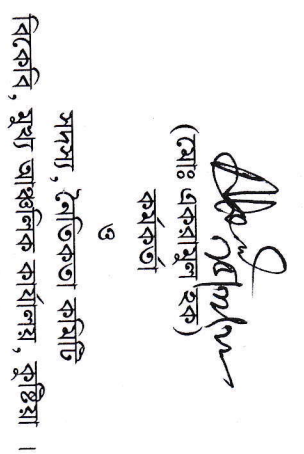 (মোঃ একরামুল হক)
কর্মকর্তা
ও
সদস্য, নৈতিকতা কমিটি
বিকেবি, মুখ্য আঞ্চলিক কার্যালয়, কুষ্টিয়া ।